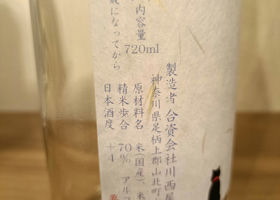 歳になってから
内容量
720ml
製造者 合資会社川西屋
神奈川県足柄上郡山北町
原材料名 米(国産)、米
精米歩合 70% アル
日本酒度 +4